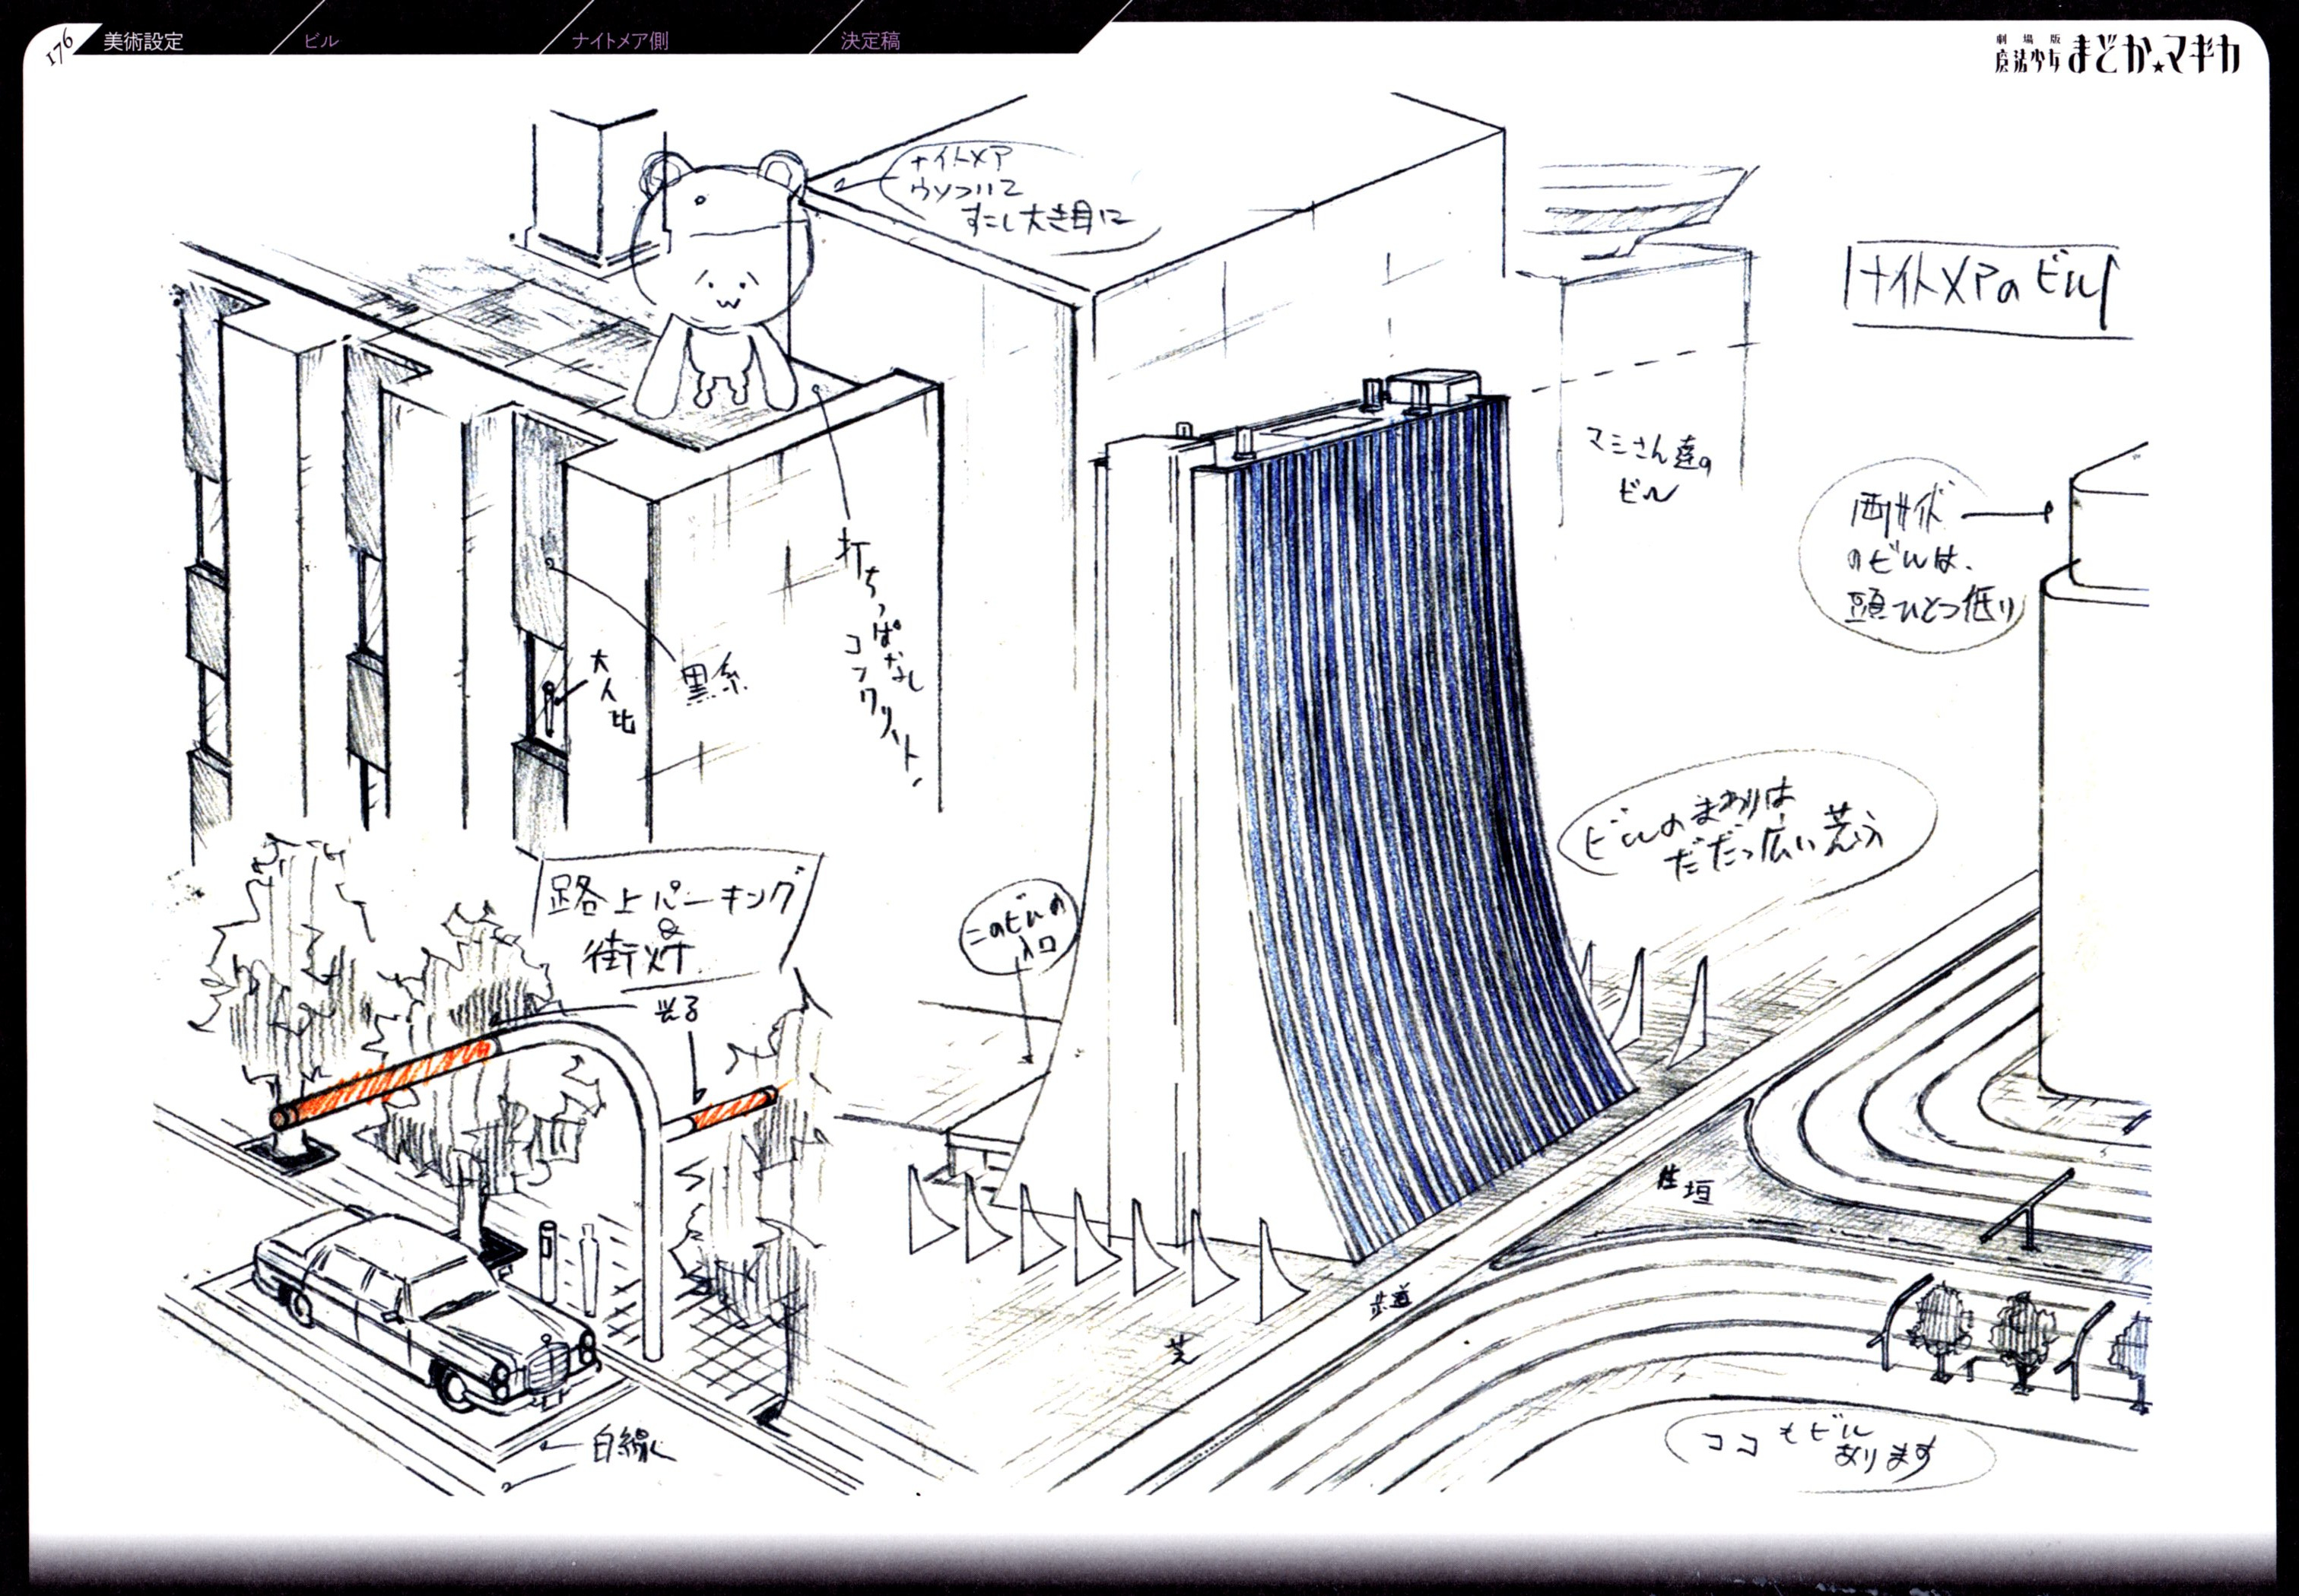 176
美術設定
ビル
ナイトメア側
決定稿
劇場版
魔法少女まどか★マギカ
ナイトメア
ウソついて
すこし大き目に
ナイトメアのビル
マミさん達の
ビル
両サイド
のビルは、
頭ひとつ低い
打ちっぱなし
コンクリート
黒系
大人比
ビルのまわりは
だだっ広い芝
路上パーキング
&
街灯
光る
このビルの
入口
生垣
歩道
芝
白線
ココもビル
あります